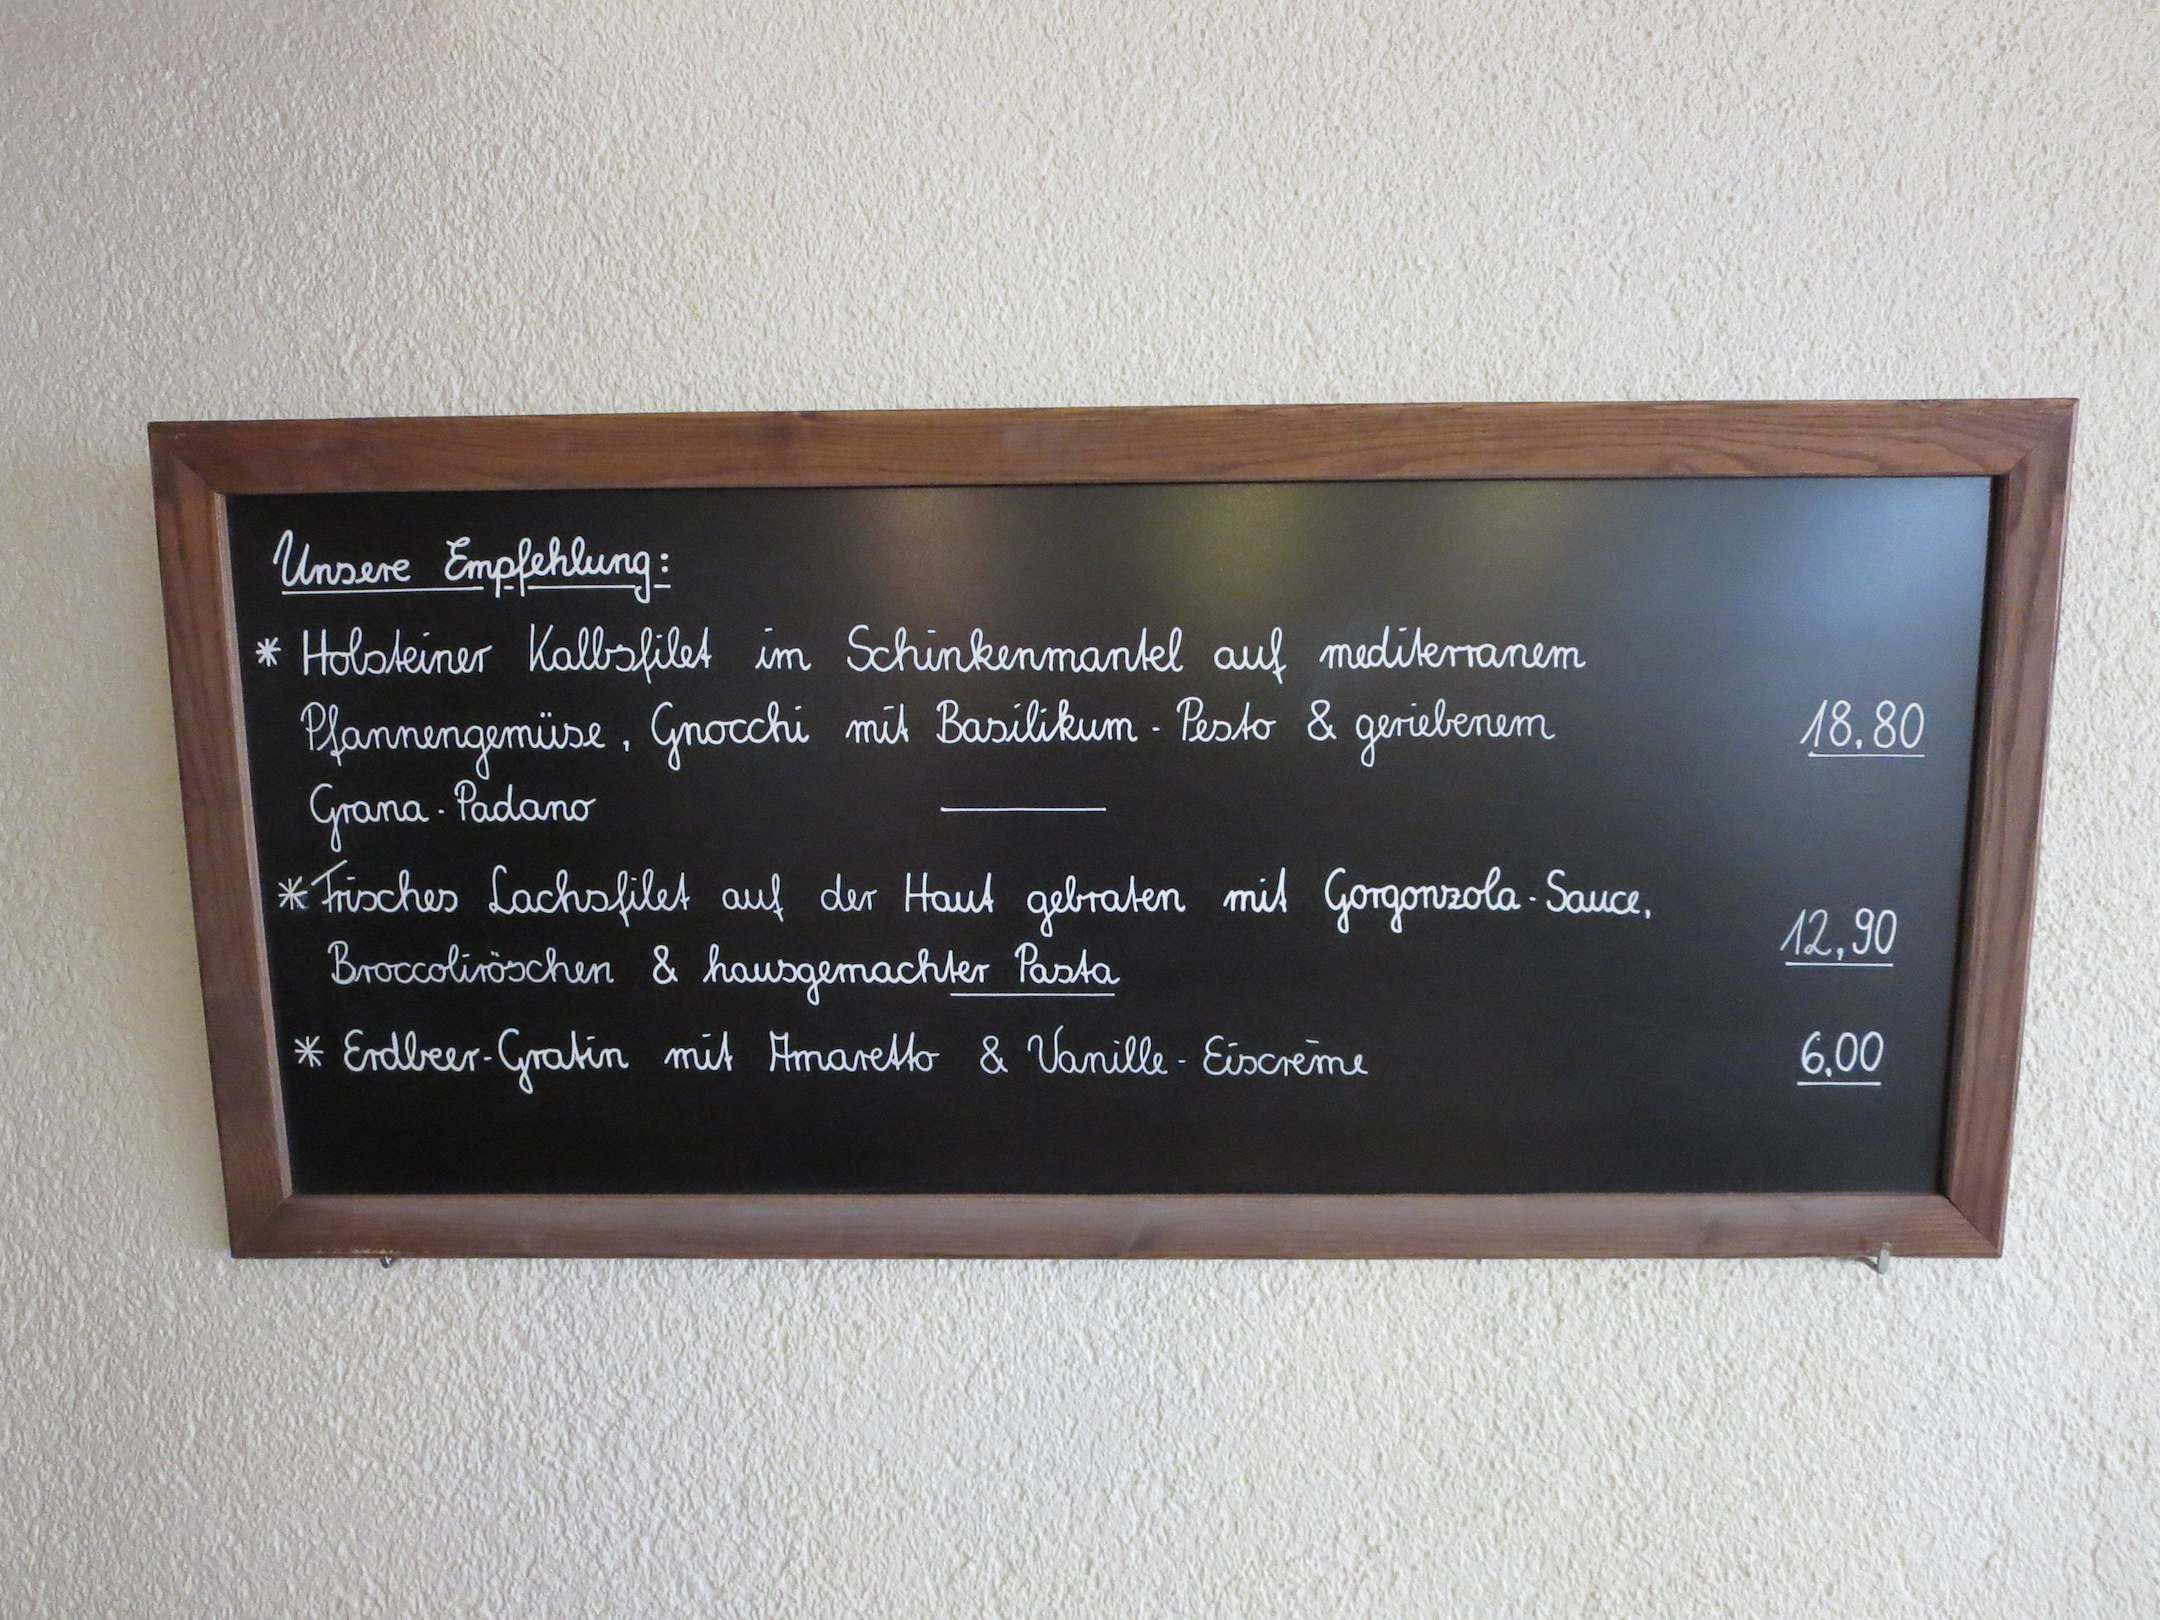 Unsere Empfehlung:
* Holsteiner Kalbsfilet im Schinkenmantel auf mediterranem
Pfannengemüse, Gnocchi mit Basilikum-Pesto & geriebenem 18,80
Grana-Padano
* Frisches Lachsfilet auf der Haut gebraten mit Gorgonzola-Sauce,
12,90
Broccoliröschen & hausgemachter Pasta
* Erdbeer-Gratin mit Amaretto & Vanille-Eiscrème 6,00